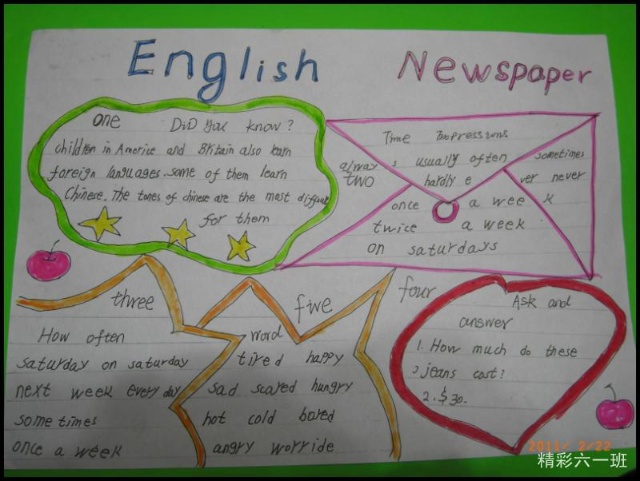 English Newspaper
one Did you know?
children in America and Britain also learn
foreign languages. some of them learn
Chinese. The tones of chinese are the most difficult
for them
Time Expressions
always usually often sometimes
TWO hardly e ver never
once a week
twice a week
on saturdays
three
How often
saturday on saturday
next week every day
some times
once a week
five
word
tired happy
sad scared hungry
hot cold bored
angry worride
four
Ask and
answer
1. How much do these
jeans cost?
2. $30.
2/22
精彩六一班